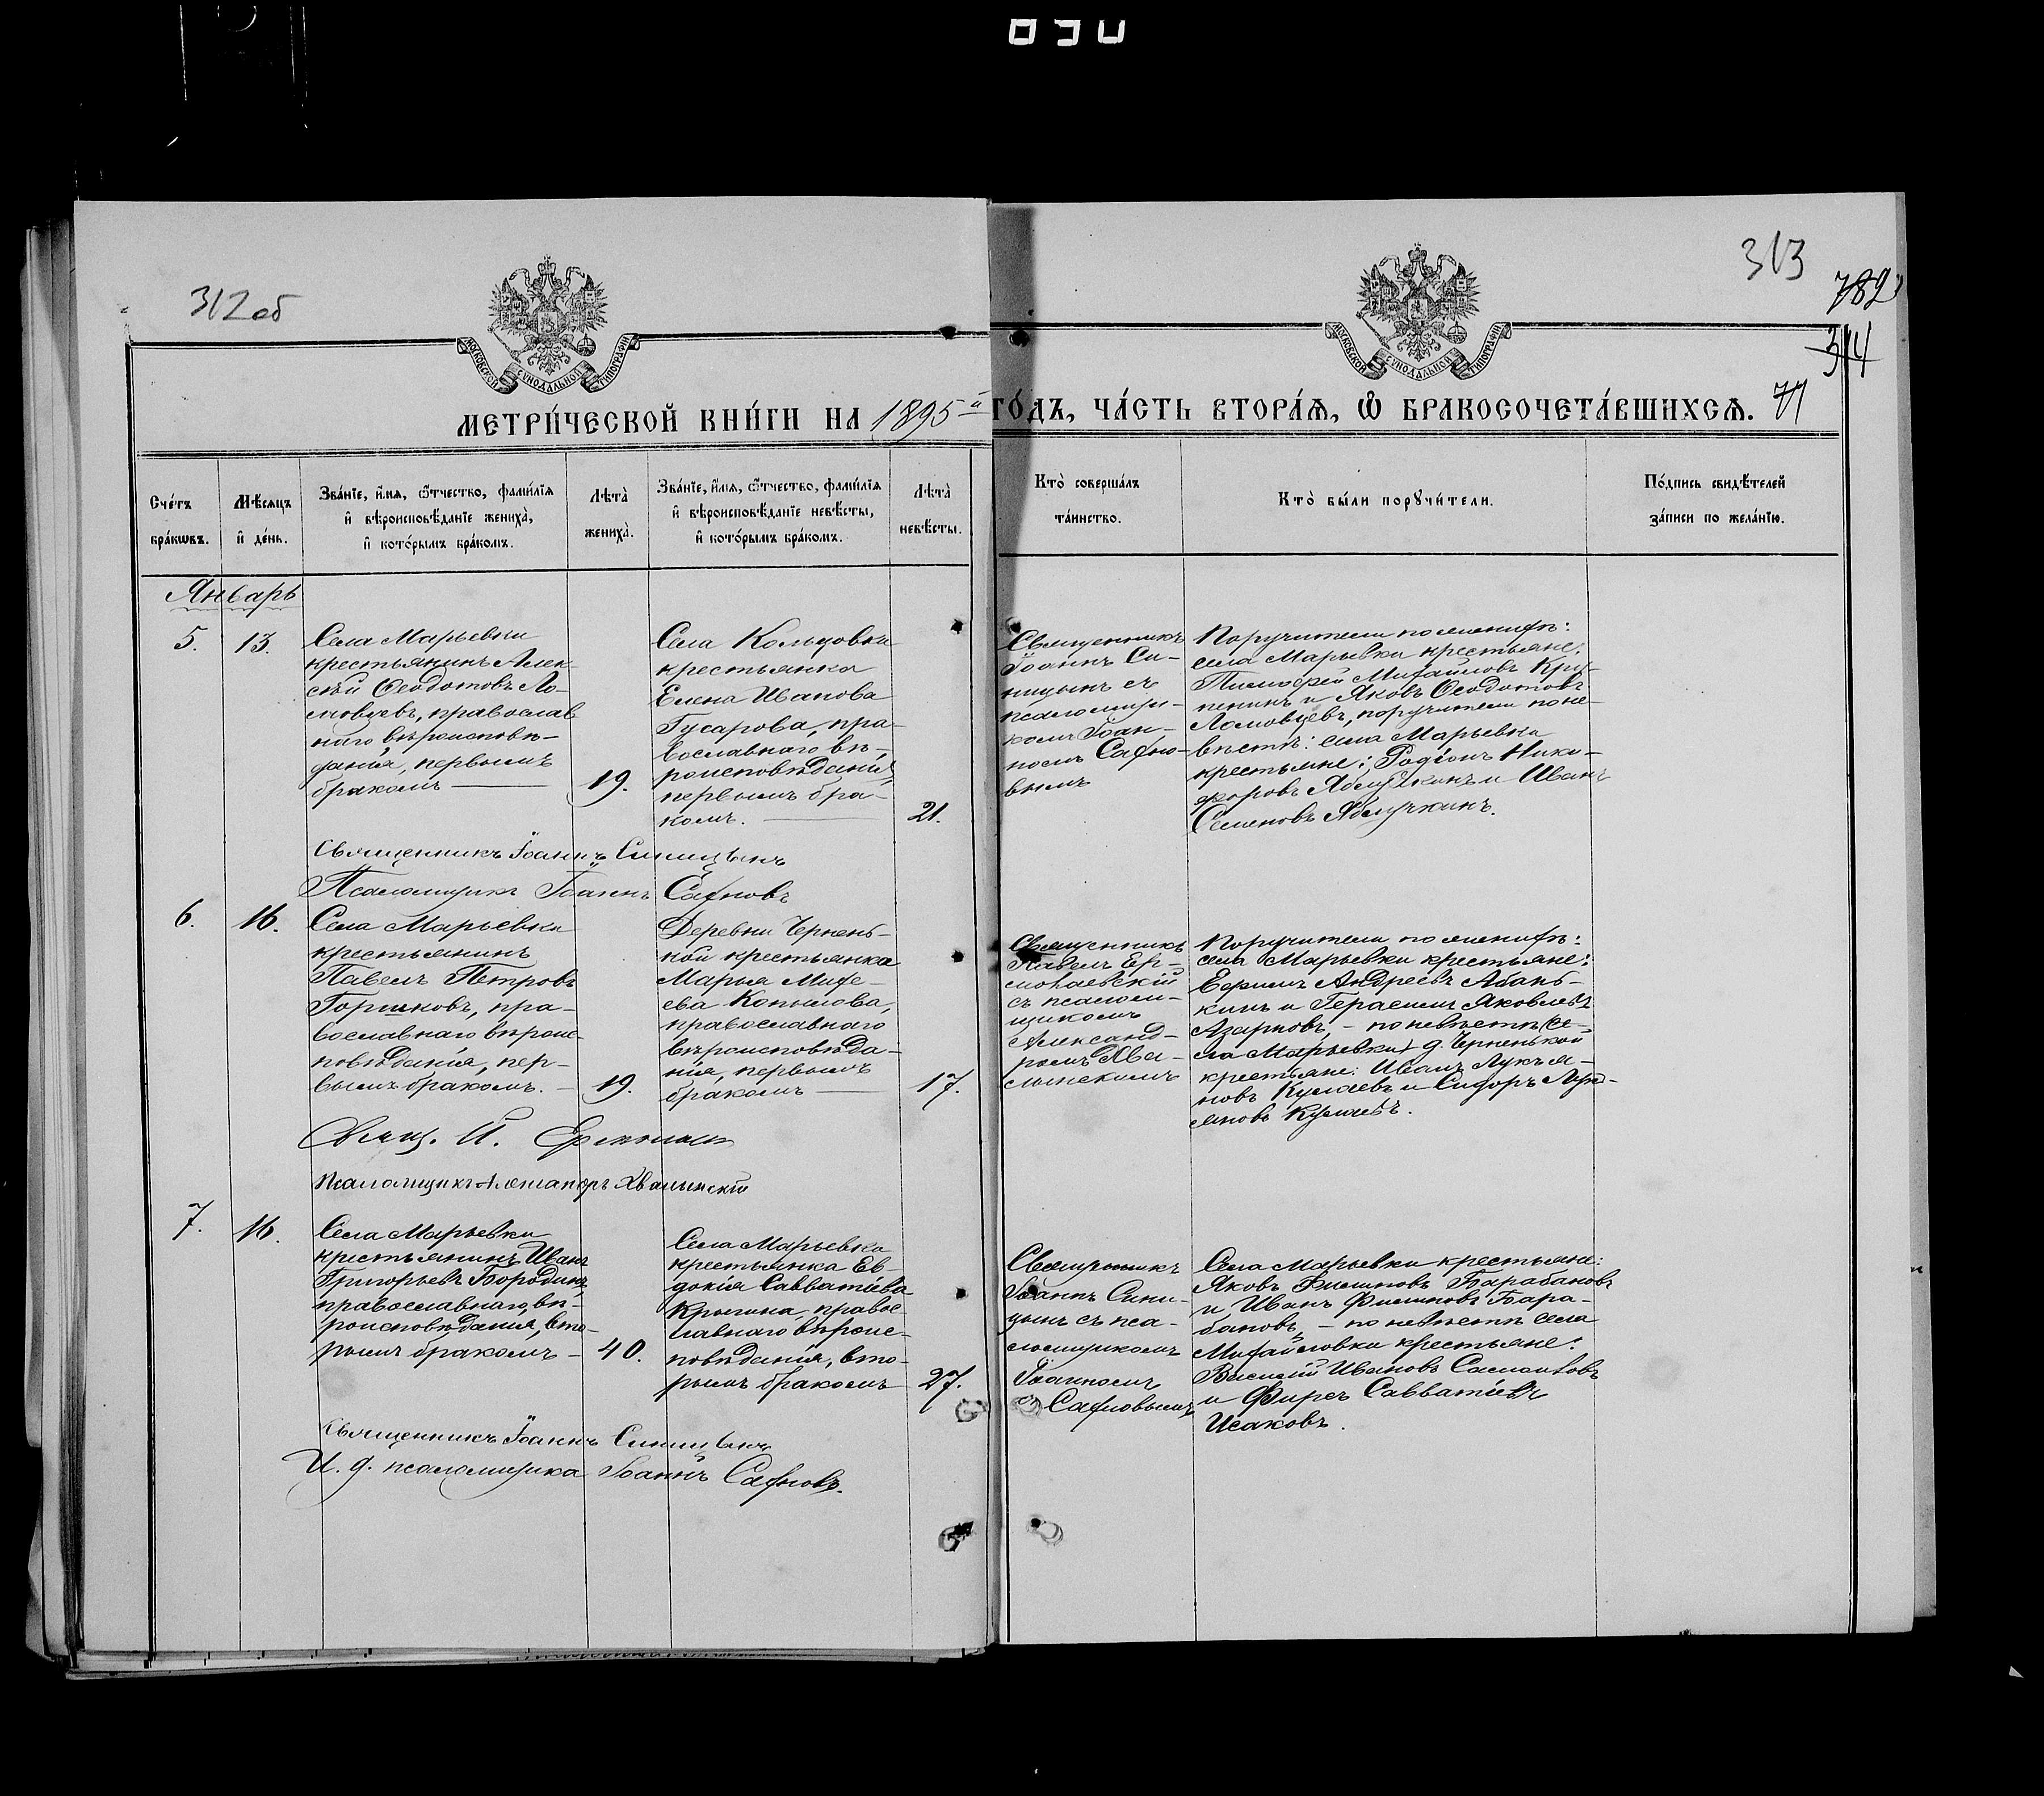 312об
313
789
314
МОСКОВСКОЙ СѴНОДАЛЬНОЙ ТИПОГРАФІИ
МОСКОВСКОЙ СѴНОДАЛЬНОЙ ТИПОГРАФІИ
МЕТРИ́ЧЕСКОЙ КНИ́ГИ НА 1895й ГО́ДЪ, ЧА́СТЬ ВТОРА́Я, Ѿ БРАКОСОЧЕТА́ВШИХСЯ. 71
Сче́тъ
бра́кѡвъ.
Мѣ́сяцъ
и҆ де́нь.
Зва́нїе, и҆́мя, ѻ҆́тчество, фами́лїя
и҆ вѣроисповѣ́данїе жениха̀,
и҆ кото́рымъ бра́комъ.
Лѣта̀
жениха̀.
Зва́нїе, и҆́мя, ѻ҆́тчество, фами́лїя
и҆ вѣроисповѣ́данїе невѣ́сты,
и҆ кото́рымъ бра́комъ.
Лѣта̀
невѣ́сты.
Кто̀ соверша́лъ
та́инство.
Кто̀ бы́ли порꙋчи́тели.
По́дпись свидѣ́телей
за́писи по жела́нїю.
Январь
5.
13.
Села Марьевки
крестьянинъ Алек-
сѣй Ѳеодотовъ Ло-
мовцевъ, православ
наго вѣроисповѣ-
данія, первымъ
бракомъ
19.
Села Кольцовки
крестьянка
Елена Иванова
Гусарова, пра-
вославнаго вѣ-
роисповѣданія,
первымъ бра-
комъ.
21.
Священникъ
Іоаннъ Си-
ницынъ съ
псаломщи-
комъ Іоан-
номъ Сафно-
вымъ
Поручители по женихѣ:
села Марьевки крестьяне:
Тимофей Михайловъ Кру-
пенинъ и Яковъ Ѳеодотовъ
Ломовцевъ, поручители по не-
вѣстѣ: села Марьевки
крестьяне: Родіонъ Ники-
форовъ Яблучкинъ и Иванъ
Семеновъ Яблучкинъ.
Священникъ Іоаннъ Синицынъ
Псаломщикъ Іоаннъ Сафновъ
6.
16.
Села Марьевки
крестьянинъ
Павелъ Петровъ
Горшковъ, пра-
вославнаго вѣроис-
повѣданія, пер-
вымъ бракомъ.
19.
Деревни Чернень-
кой крестьянка
Марья Михе-
ева Копылова,
православнаго
вѣроисповѣда-
нія, первымъ
бракомъ
17.
Священникъ
Павелъ Ер-
молаевскій
съ псалом-
щикомъ
Александ-
ромъ Хва-
лынскимъ
Поручители по женихѣ:
села Марьевки крестьяне:
Ефимъ Андреевъ Абань-
кинъ и Герасимъ Яковлевъ
Азарновъ, - по невѣстѣ (се-
ла Марьевки) д. Черненькой
крестьяне: Иванъ Лукъя-
новъ Кулаевъ и Сидоръ Лукь-
яновъ
Свящ. П.
Псаломщикъ Александръ Хвалынскій
7.
16.
Села Марьевки
крестьянинъ Иванъ
Григорьевъ Бородинъ,
православнаго вѣ-
роисповѣданія, вто-
рымъ бракомъ
40.
Села Марьевки
крестьянка Ев-
докія Савватіева
Крыгина, правос-
лавнаго вѣроис-
повѣданія, вто-
рымъ бракомъ
27.
Священникъ
Іоаннъ Сини-
цынъ съ пса-
ломщикомъ
Іоанномъ
Сафновымъ
Села Марьевки крестьяне:
Яковъ Филиповъ Барабановъ
и Иванъ Филиповъ Бара-
бановъ, - по невѣстѣ села
Михайловки крестьяне:
Василій Ивановъ
и Фирсъ Савватіевъ
Исаковъ.
Священникъ Іоаннъ Синицынъ
И. д. псаломщика Іоаннъ Сафновъ.